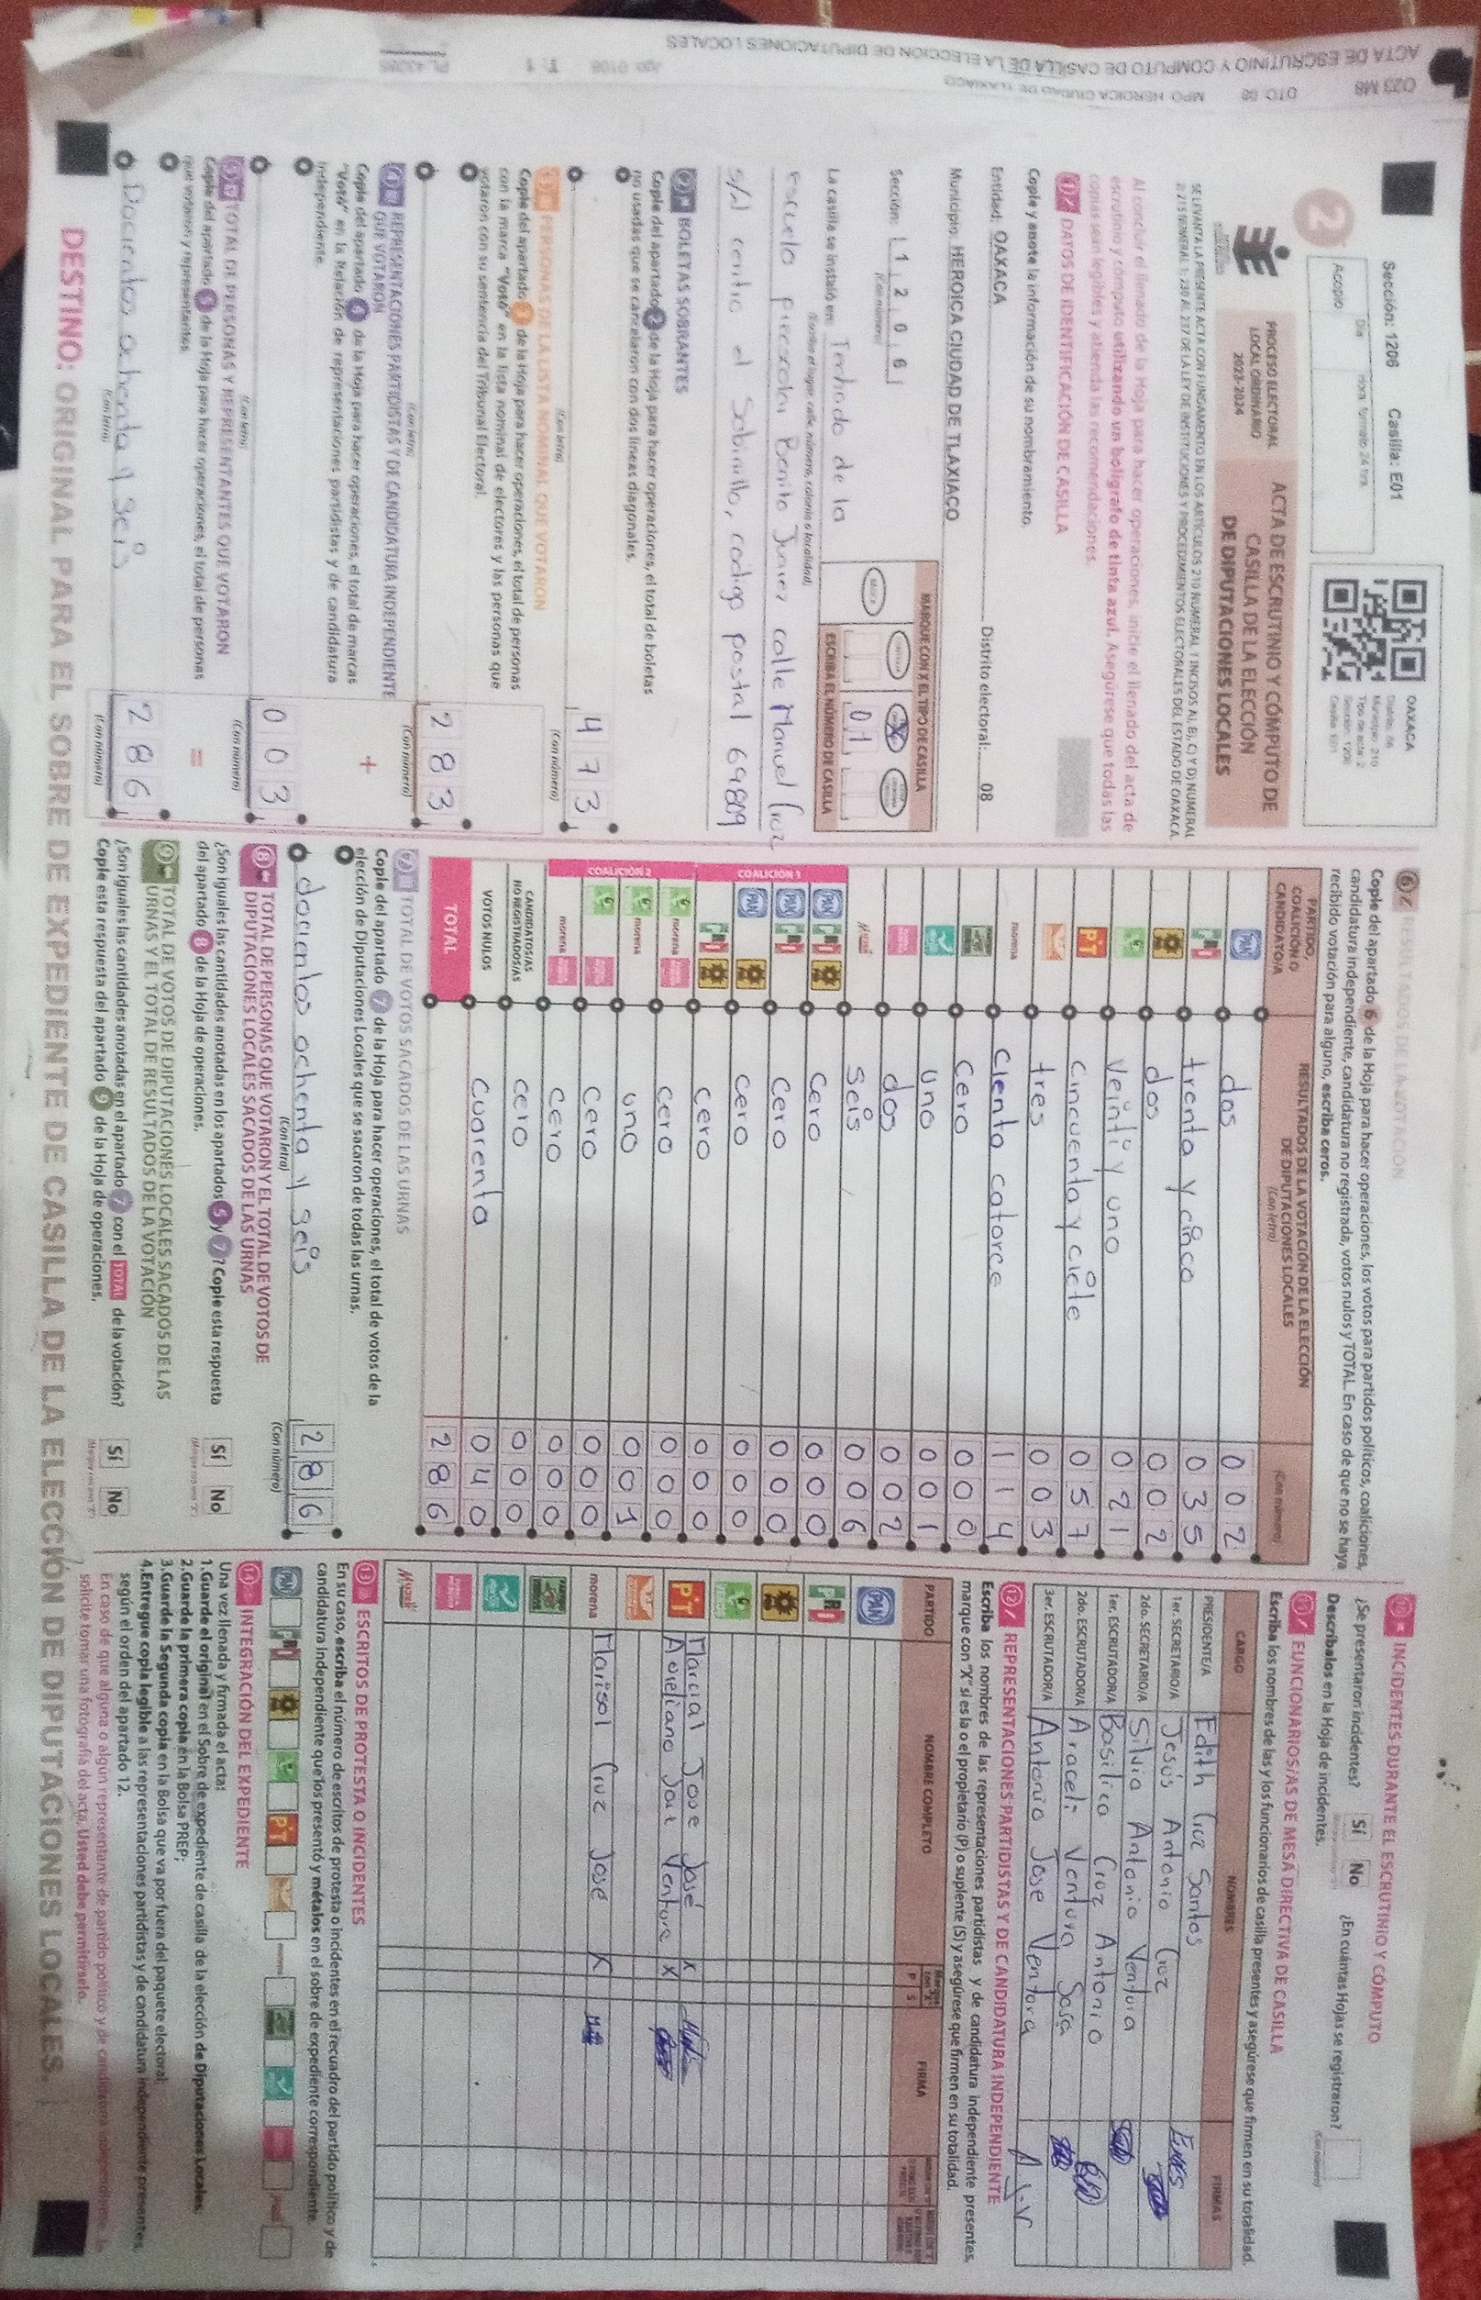 Sección: 1206 Casilla: E01
Acopio
Día
Hora formato 24 hrs.
OAXACA
2
PROCESO ELECTORAL
LOCAL ORDINARIO
2023-2024
ACTA DE ESCRUTINIO Y CÓMPUTO DE
CASILLA DE LA ELECCIÓN
DE DIPUTACIONES LOCALES
Al concluir el llenado de la Hoja para hacer operaciones, inicie el llenado del acta de
escrutinio y cómputo utilizando un bolígrafo de tinta azul. Asegúrese que todas las
copias sean legibles y atienda las recomendaciones.
1 DATOS DE IDENTIFICACIÓN DE CASILLA
Copie y anote la información de su nombramiento.
Entidad: OAXACA Distrito electoral: 08
Municipio: HEROICA CIUDAD DE TLAXIACO
Sección: 1 2 0 6
(Con número)
MARQUE CON X EL TIPO DE CASILLA
X
ESCRIBA EL NÚMERO DE CASILLA
0 1
La casilla se instaló en: Techado de la
(Escriba el lugar, calle, número, colonia o localidad)
escuela preescolar Benito Juarez calle Manuel Cruz
s/n centro el Sabinillo, codigo postal 69809
2 BOLETAS SOBRANTES
Copie del apartado 2 de la Hoja para hacer operaciones, el total de boletas
no usadas que se cancelaron con dos líneas diagonales.
4 7 3
(Con letra) (Con número)
3 PERSONAS DE LA LISTA NOMINAL QUE VOTARON
Copie del apartado 3 de la Hoja para hacer operaciones, el total de personas
con la marca "Votó" en la lista nominal de electores y las personas que
votaron con su sentencia del Tribunal Electoral.
2 8 3
(Con letra) (Con número)
4 REPRESENTACIONES PARTIDISTAS Y DE CANDIDATURA INDEPENDIENTE
QUE VOTARON
Copie del apartado 4 de la Hoja para hacer operaciones, el total de marcas
"Votó" en la Relación de representaciones partidistas y de candidatura
independiente.
+
0 0 3
(Con letra) (Con número)
5 TOTAL DE PERSONAS Y REPRESENTANTES QUE VOTARON
Copie del apartado 5 de la Hoja para hacer operaciones, el total de personas
que votaron y representantes.
=
Docientos ochenta y seis 2 8 6
(Con letra) (Con número)
6 RESULTADOS DE LA VOTACIÓN
Copie del apartado 6 de la Hoja para hacer operaciones, los votos para partidos políticos, coaliciones,
candidatura independiente, candidatura no registrada, votos nulos y TOTAL. En caso de que no se haya
recibido votación para alguno, escriba ceros.
PARTIDO,
COALICIÓN O
CANDIDATO/A
RESULTADOS DE LA VOTACIÓN DE LA ELECCIÓN
DE DIPUTACIONES LOCALES
(Con letra)
(Con número)
PAN dos 0 0 2
PRI trenta y cinco 0 3 5
dos 0 0 2
Veinti y uno 0 2 1
PT Cincuenta y ciete 0 5 7
tres 0 0 3
morena Ciento catorce 1 1 4
Cero 0 0 0
uno 0 0 1
dos 0 0 2
Seis 0 0 6
COALICIÓN 1
PAN PRI Cero 0 0 0
PAN PRI Cero 0 0 0
PAN Cero 0 0 0
PRI Cero 0 0 0
COALICIÓN 2
morena Cero 0 0 0
morena uno 0 0 1
Cero 0 0 0
morena Cero 0 0 0
CANDIDATOS/AS
NO REGISTRADOS/AS
cero 0 0 0
VOTOS NULOS Cuarenta 0 4 0
TOTAL 2 8 6
7 TOTAL DE VOTOS SACADOS DE LAS URNAS
Copie del apartado 7 de la Hoja para hacer operaciones, el total de votos de la
elección de Diputaciones Locales que se sacaron de todas las urnas.
docientos ochenta y seis 2 8 6
(Con letra) (Con número)
8 TOTAL DE PERSONAS QUE VOTARON Y EL TOTAL DE VOTOS DE
DIPUTACIONES LOCALES SACADOS DE LAS URNAS
¿Son iguales las cantidades anotadas en los apartados 5 y 7? Copie esta respuesta
del apartado 8 de la Hoja de operaciones.
Sí No
9 TOTAL DE VOTOS DE DIPUTACIONES LOCALES SACADOS DE LAS
URNAS Y EL TOTAL DE RESULTADOS DE LA VOTACIÓN
¿Son iguales las cantidades anotadas en el apartado 7 con el TOTAL de la votación?
Copie esta respuesta del apartado 9 de la Hoja de operaciones.
Sí No
10 INCIDENTES DURANTE EL ESCRUTINIO Y CÓMPUTO
¿Se presentaron incidentes? Sí No ¿En cuántas Hojas se registraron?
Descríbalos en la Hoja de incidentes.
11 FUNCIONARIOS/AS DE MESA DIRECTIVA DE CASILLA
Escriba los nombres de las y los funcionarios de casilla presentes y asegúrese que firmen en su totalidad.
CARGO NOMBRES FIRMAS
PRESIDENTE/A Edith Cruz Santos
1er. SECRETARIO/A Jesús Antonio Cruz
2do. SECRETARIO/A Silvia Antonio Ventura
1er. ESCRUTADOR/A Basilica Cruz Antonio
2do. ESCRUTADOR/A Araceli Ventura Sosa
3er. ESCRUTADOR/A Antonio Jose Ventora
12 REPRESENTACIONES PARTIDISTAS Y DE CANDIDATURA INDEPENDIENTE
Escriba los nombres de las representaciones partidistas y de candidatura independiente presentes,
marque con "X" si es la o el propietario (P) o suplente (S) y asegúrese que firmen en su totalidad.
PARTIDO NOMBRE COMPLETO P S FIRMA
PAN
PRI
PT Marcial Jose José X
Aureliano José Ventura X
morena Marisol Cruz Jose X
13 ESCRITOS DE PROTESTA O INCIDENTES
En su caso, escriba el número de escritos de protesta o incidentes en el recuadro del partido político y de
candidatura independiente que los presentó y métalos en el sobre de expediente correspondiente.
14 INTEGRACIÓN DEL EXPEDIENTE
Una vez llenada y firmada el acta:
1.Guarde el original en el Sobre de expediente de casilla de la elección de Diputaciones Locales;
2.Guarde la primera copia en la Bolsa PREP;
3.Guarde la Segunda copia en la Bolsa que va por fuera del paquete electoral;
4.Entregue copia legible a las representaciones partidistas y de candidatura independiente presentes,
según el orden del apartado 12.
En caso de que alguna o algún representante de partido político y de candidatura independiente, lo
solicite tomar una fotografía del acta, Usted debe permitírselo.
DESTINO: ORIGINAL PARA EL SOBRE DE EXPEDIENTE DE CASILLA DE LA ELECCIÓN DE DIPUTACIONES LOCALES.
ACTA DE ESCRUTINIO Y COMPUTO DE CASILLA DE LA ELECCION DE DIPUTACIONES LOCALES